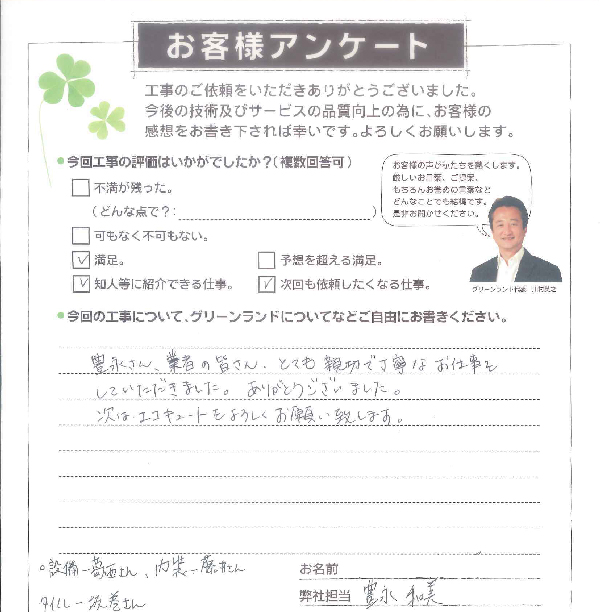 お客様アンケート
工事のご依頼をいただきありがとうございました。
今後の技術及びサービスの品質向上の為に、お客様の
感想をお書き下されば幸いです。よろしくお願いします。
●今回工事の評価はいかがでしたか?(複数回答可)
不満が残った。
(どんな点で?: )
可もなく不可もない。
満足。
予想を超える満足。
知人等に紹介できる仕事。
次回も依頼したくなる仕事。
お客様の声が私たちを熱くします。
厳しいお言葉、ご提案、
もちろんお誉めの言葉など
どんなことでも結構です。
是非お聞かせください。
グリーンランド代表
●今回の工事について、グリーンランドについてなどご自由にお書きください。
豊永さん、業者の皆さん、とても親切で丁寧なお仕事を
していただきました。ありがとうございました。
次はエコキュートをよろしくお願い致します。
○設備-葛西さん、内装-藤井さん
タイル-坂巻さん
お名前
弊社担当 豊永 和美